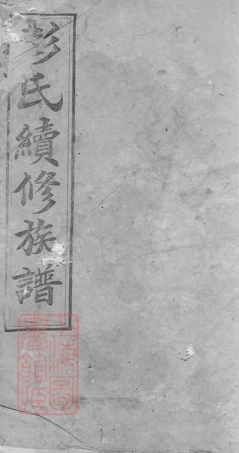 彭氏續修族譜